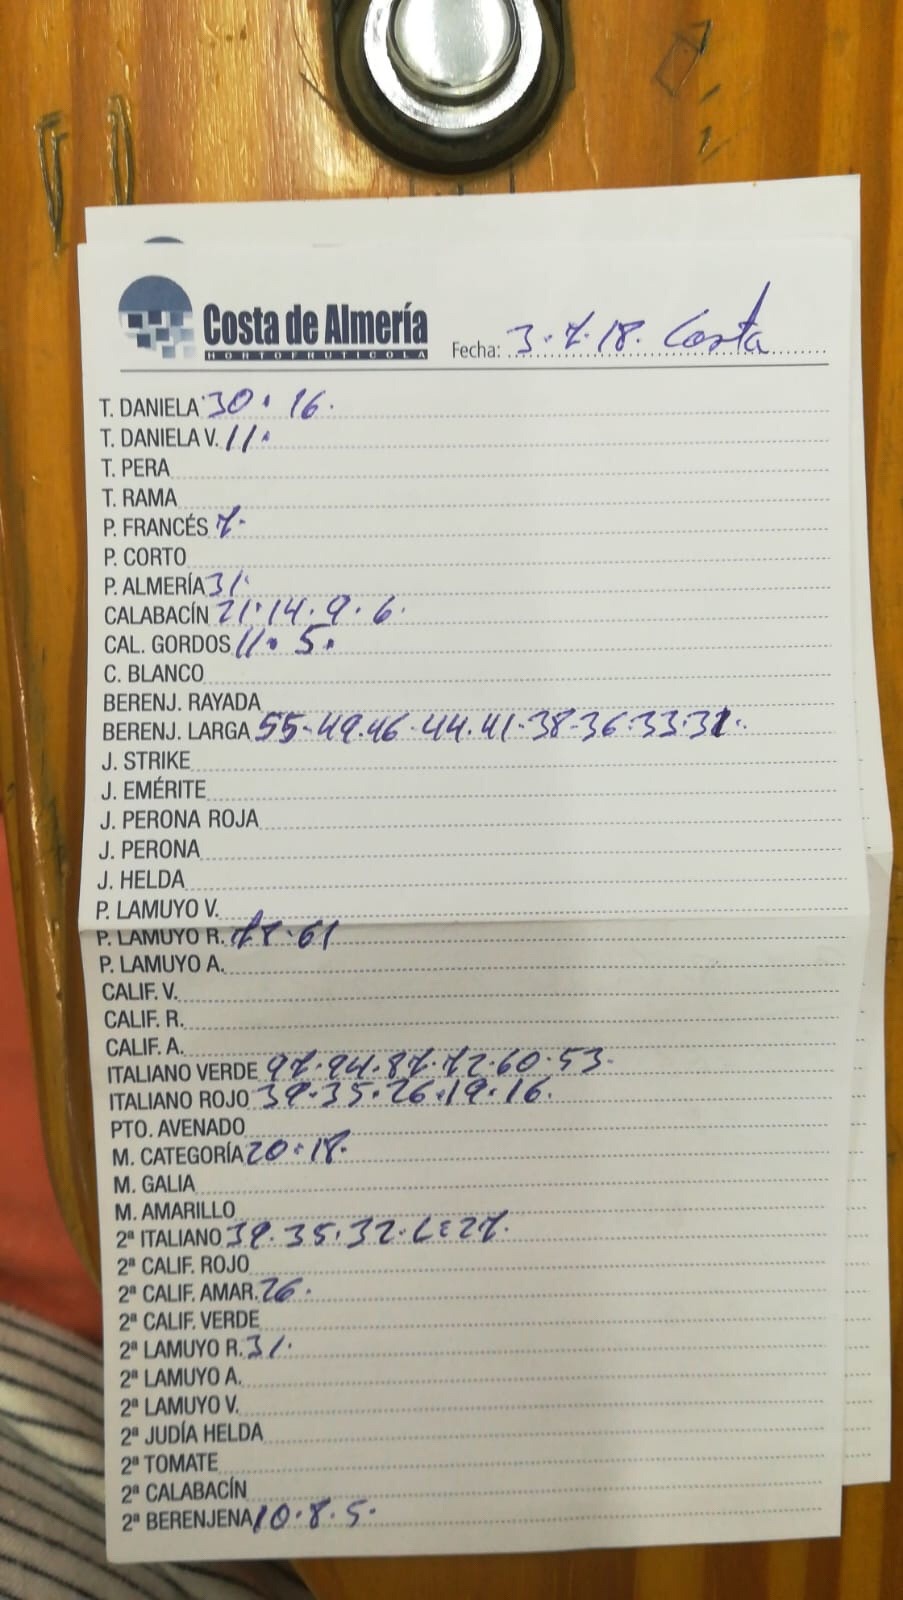 Costa de Almería
HORTOFRUTICOLA
Fecha: 3.7.18. Costa
T. DANIELA 30. 16.
T. DANIELA V. 11.
T. PERA
T. RAMA
P. FRANCÉS 7.
P. CORTO
P. ALMERÍA 31.
CALABACÍN 21.14.9.6.
CAL. GORDOS 11. 5.
C. BLANCO
BERENJ. RAYADA
BERENJ. LARGA 55-49.46-44.41-38-36.33.31.
J. STRIKE
J. EMÉRITE
J. PERONA ROJA
J. PERONA
J. HELDA
P. LAMUYO V.
P. LAMUYO R. 78.61
P. LAMUYO A.
CALIF. V.
CALIF. R.
CALIF. A.
ITALIANO VERDE 97.94.87.72.60.53.
ITALIANO ROJO 39.35.26.19.16.
PTO. AVENADO
M. CATEGORÍA 20.18.
M. GALIA
M. AMARILLO
2ª ITALIANO 39.35.32. 27.
2ª CALIF. ROJO
2ª CALIF. AMAR. 26.
2ª CALIF. VERDE
2ª LAMUYO R. 31.
2ª LAMUYO A.
2ª LAMUYO V.
2ª JUDÍA HELDA
2ª TOMATE
2ª CALABACÍN
2ª BERENJENA 10.8.5.